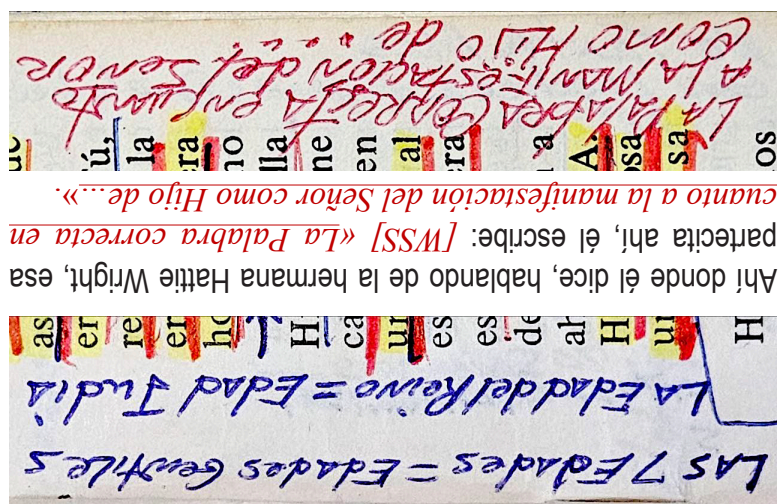 LAS 7 Edades = Edades Gentiles
LA Edad del Reino = Edad Judía
Ahí donde él dice, hablando de la hermana Hattie Wright, esa
partecita ahí, él escribe: [WSS] «La Palabra correcta en
cuanto a la manifestación del Señor como Hijo de...».
LA PALABRA CORRECTA EN CUANTO
A LA MANIFESTACIÓN del SEÑOR
COMO HIJO de ...